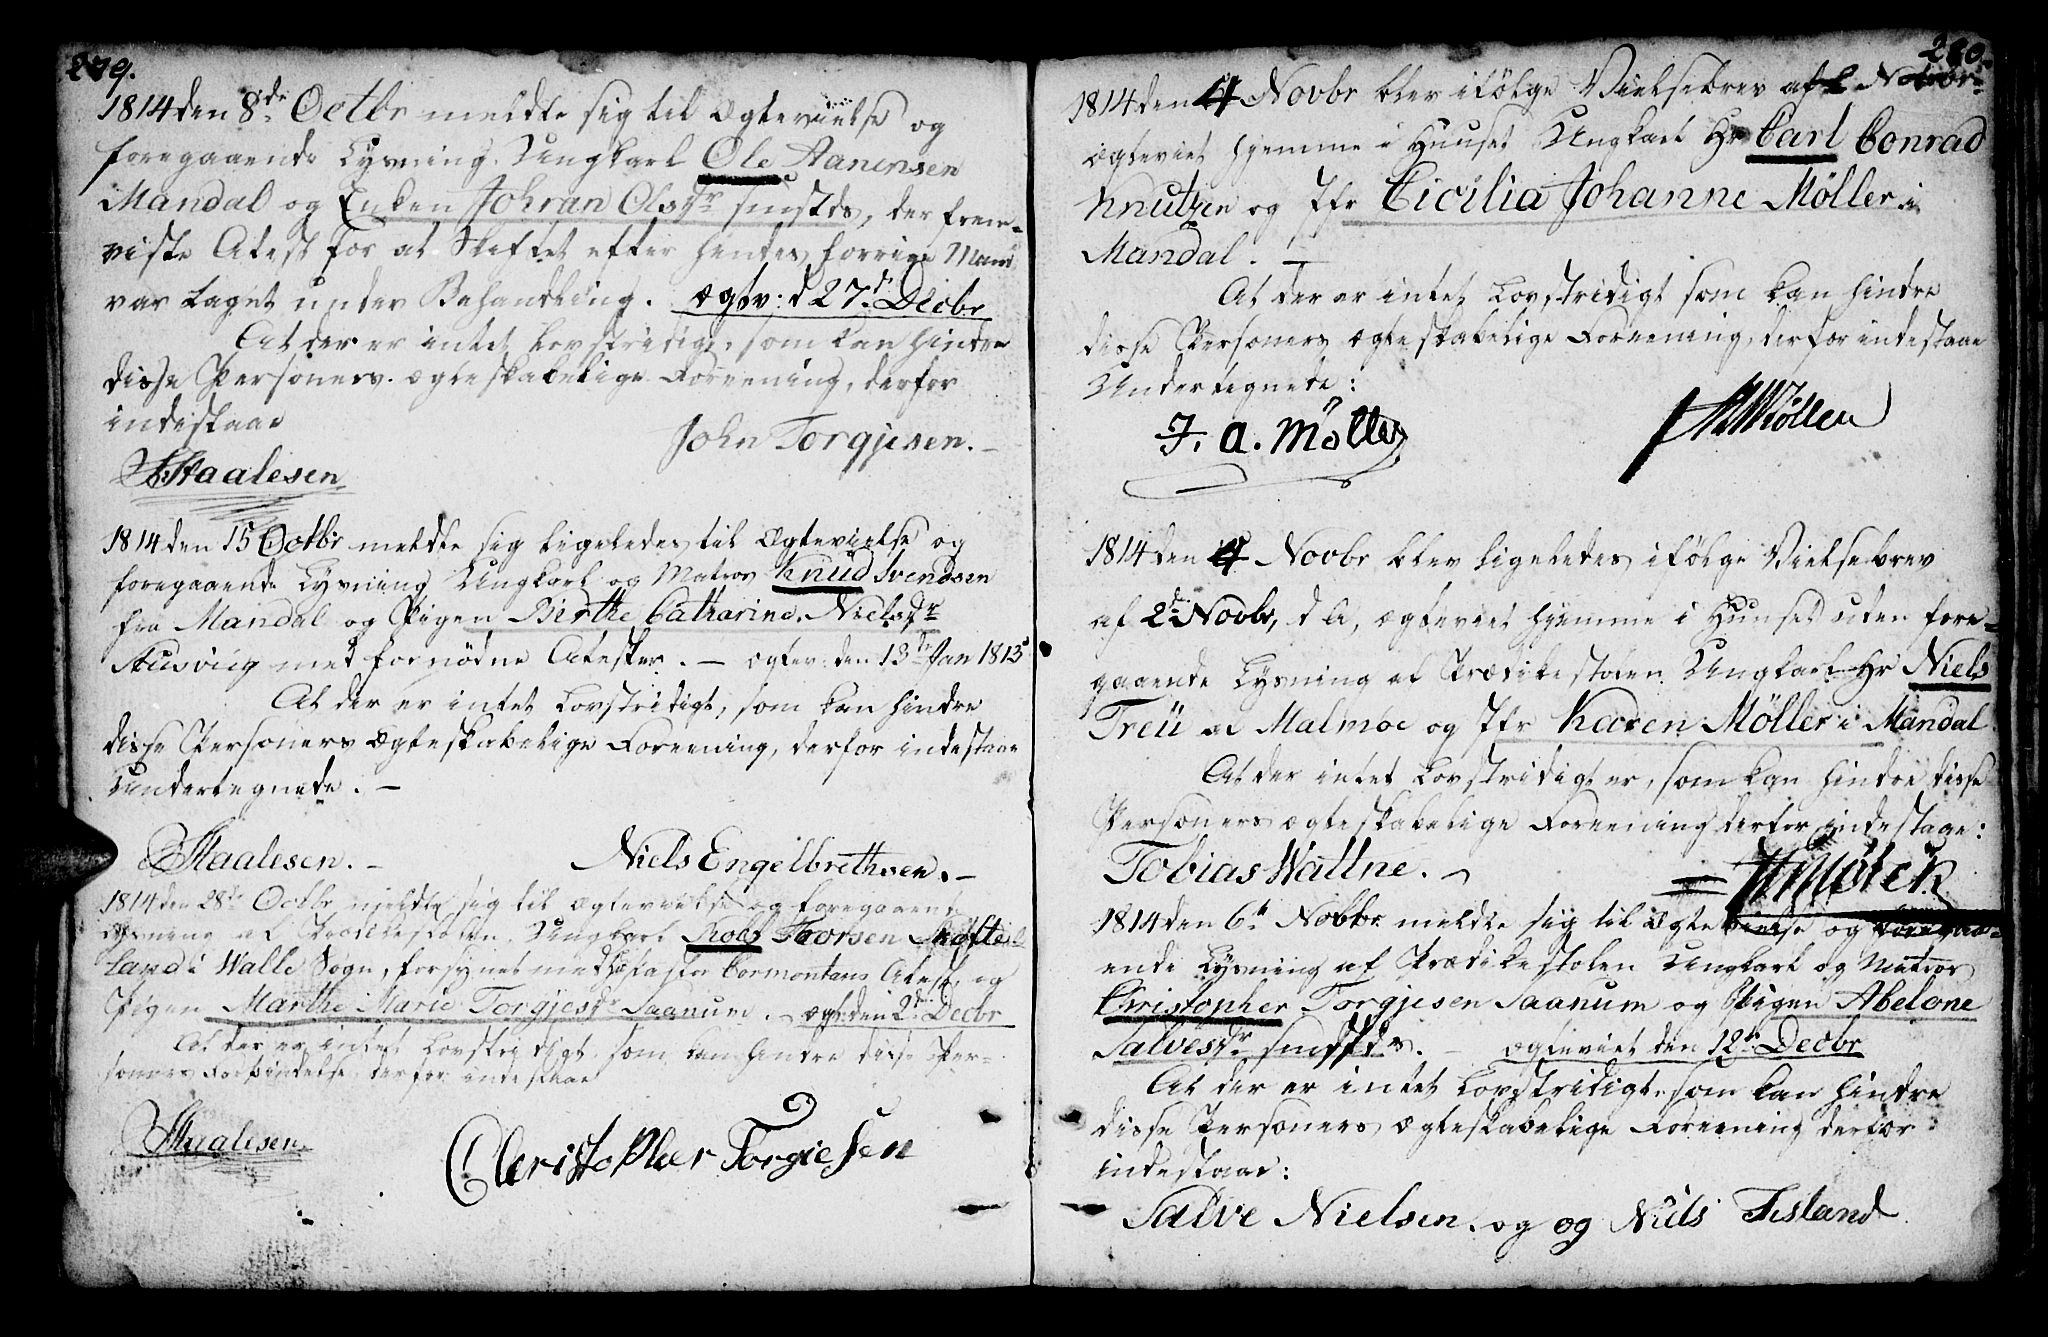 279.
1814 den 8de Octbr meldte sig til Ægtevielse og
foregaaende Lysning Ungkarl Ole Aanensen
Mandal og Enken Johran Olsdr smstds, der frem-
viste Atest for at Skiftet efter hendes forrige Mand
var taget under Behandling. ægtv: d 27d Decbr
At der er intet Lovstridigt, som kan hindre
disse Personers ægteskabelige Foreening, derfor
indestaae
John Torgjesen.
Staalesen
1814 den 15 Octbr meldte sig ligeledes til Ægtevielse og
foregaaende Lysning Ungkarl og Matros Knud Svendsen
fra Mandal og Pigen Birthe Catharine Nielsdr
med fornødne Atester. — ægtev: den 13de Jan 1815
At der er intet Lovstridigt, som kan hindre
disse Personers Ægteskabelige Foreening, derfor indestaae
Undertegnede. —
Staalesen. —
Niels Engelbrethsen. —
1814 den 28de Octbr meldte sig til Ægtevielse og foregaaende
Lysning af Prædikestolen, Ungkarl Rolf Thorsen
Land i Walle Sogn, forsynet med Atest, og
Pigen Marthe Marie Torgjesdr Saanum. — ægt: den 2d Decbr
At der er intet Lovstridigt som kan hindre disse Per-
soners Forbindelse, derfor indestaae
Staalesen
Christopher Torgiesen
280.
1814 den 4 Novbr blev ifølge Vielsebrev af Novbr
ægteviet hjemme i Huuset Ungkarl Hr Carl Conrad
Knutzen og Jfr Cicilia Johanne Møller i
Mandal. —
At der er intet Lovstridigt som kan hindre
disse Personers ægteskabelige Foreening, derfor indestaae
Undertegnede:
J. A. Møller
Møller
1814 den 4 Novbr blev ligeledes ifølge Vielsebrev
af 2d Novbr, d A, ægteviet hjemme i Huuset uden fore-
gaaende Lysning af Prædikestolen Ungkarl Hr Niels
Treü a Malmoe og Jfr Karen Møller i Mandal
At der intet Lovstridigt er, som kan hindre disse
Personers ægteskabelige Foreening derfor indestaae:
Tobias Wallne. —
1814 den 6te Nobbr meldte sig til Ægtevielse og foregaa-
ende Lysning af Prædikestolen Ungkarl og Matros
Christopher Torgjesen Saanum og Pigen Abelone
Salvesdr smstds. — ægteviet den 12te Decbr
At der er intet Lovstridigt, som kan hindre
disse Personers ægteskabelige Foreening derfor
indestaae:
Salve Nielsen. og og Niels Tisland